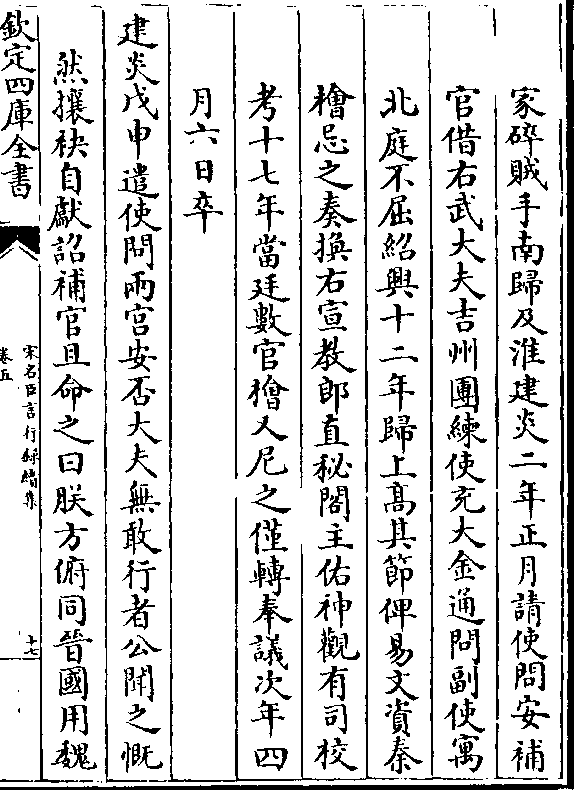 家碎賊手南歸及淮建炎二年正月請使問安補
官借右武大夫吉州團練使充大金通問副使寓
北庭不屈紹興十二年歸上髙其節俾易文資秦
檜忌之奏換右宣教郎直秘閣主佑神觀有司校
考十七年當廷數官檜又尼之僅轉奉議次年四
月六日卒
建炎戊申遣使問兩宮安否大夫無敢行者公聞之慨
然攘袂自獻詔補官且命之曰朕方俯同晉國用魏
欽定四庫全書
宋名臣言行録續集
卷五
十七